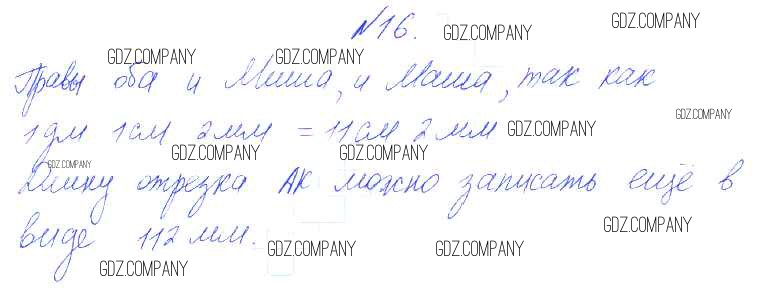 №16.
GDZ.COMPANY
GDZ.COMPANY
GDZ.COMPANY
GDZ.COMPANY
Правы оба и Миша, и Маша, так как
GDZ.COMPANY
1дм 1см 2мм = 11см 2мм
GDZ.COMPANY
GDZ.COMPANY
GDZ.COMPANY
GDZ.COMPANY
Длину отрезка АК можно записать ещё в
виде 112 мм.
GDZ.COMPANY
GDZ.COMPANY
GDZ.COMPANY
GDZ.COMPANY